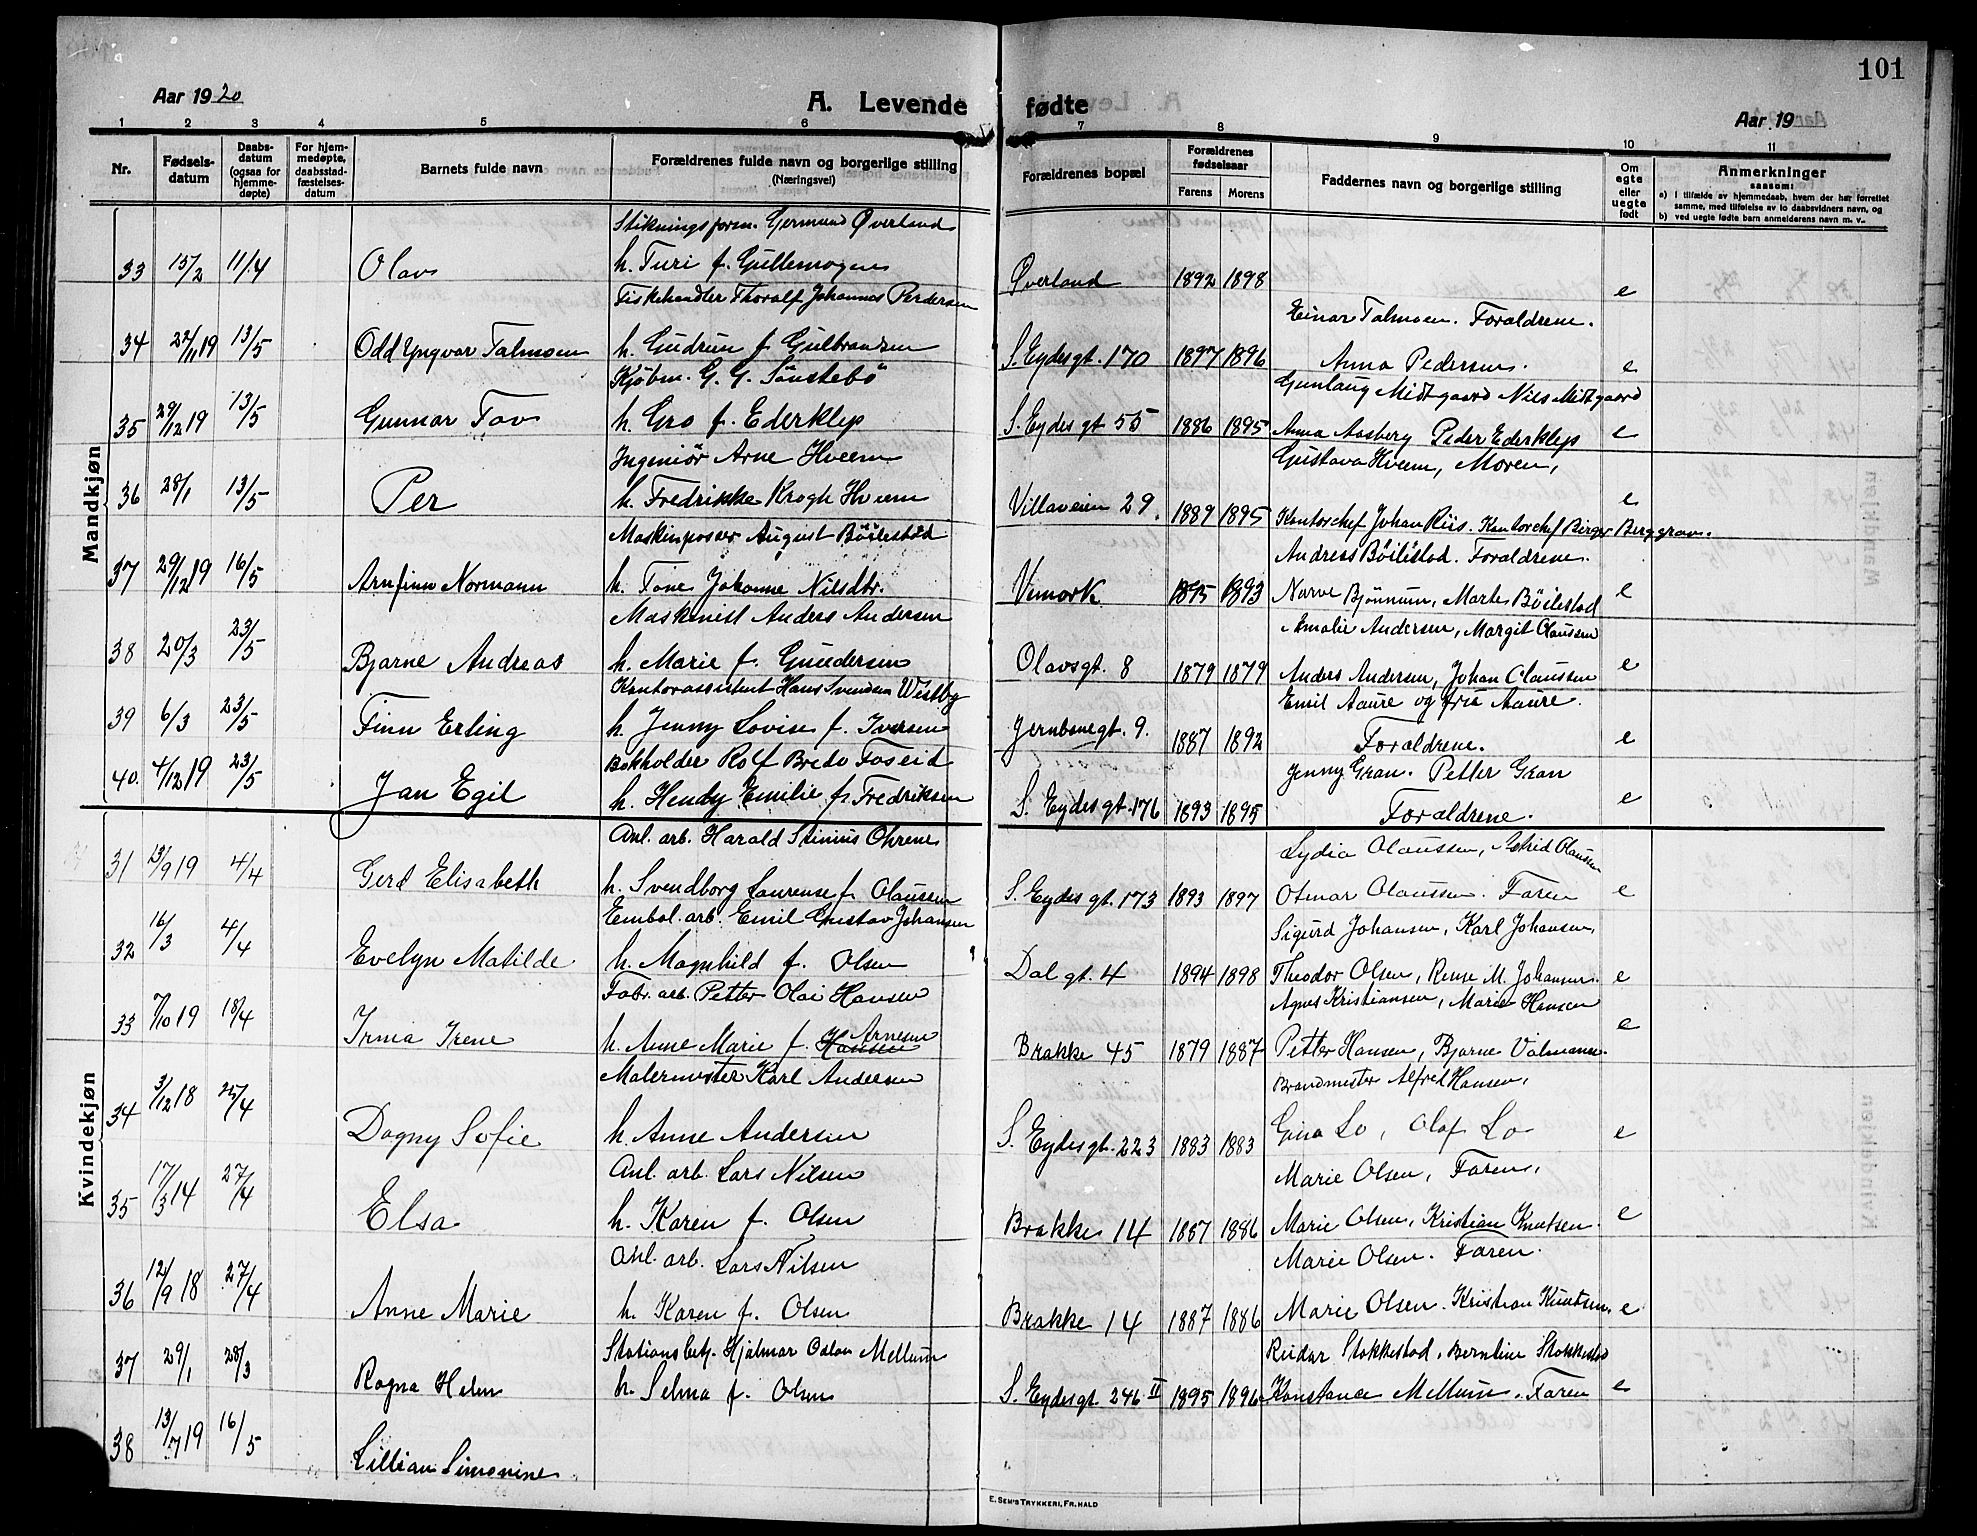 101
Aar 1920
A. Levende fødte
Aar 19
1 2 3 4 5 6 7 8 9 10 11
Nr.
Fødsels-
datum
Daabs-
datum
(ogsaa for
hjemme-
døpte)
For hjem-
medøpte,
daabsstad-
fæstelses-
datum
Barnets fulde navn
Forældrenes fulde navn og borgerlige stilling
(Næringsvei)
Forældrenes bopæl
Forældrenes
fødselsaar
Farens Morens
Faddernes navn og borgerlige stilling
Om
egte
eller
uegte
født
Anmerkninger
saasom:
a) i tilfælde av hjemmedaab, hvem der har forrettet
samme, med tilføielse av to daabsvidners navn, og
b) ved uegte fødte barn anmelderens navn m. v.
Mandkjøn
Stikningsform. Germund Øverland
33 15/2 11/4 Olav h. Turi f. Øverland 1892 1898 e
Fiskehandler Thoralf Johannes Pedersen Einar Talmoen. Foraldrene.
34 22/11 19 13/5 Odd Yngvar Talmoen h. Gudrun f. Gulbrandsen S. Eydesgt. 170 1897 1896 Anna Pedersen. e
Kjøbm. G. G. Sönstebö Gunlaug Midtgaard Nils Midtgaard
35 29/12 19 13/5 Gunnar Tov h. Gro f. Ederklep S. Eydesgt 55 1886 1895 Anna Aasberg Peder Ederklep e
Ingeniör Arne Hveem Gustava Hveem, Moren,
36 28/1 13/5 Per h. Fredrikke Krogh Hveem Villaveien 29. 1889 1895 Kontorchef Johan Riis. Kontorchef Birger Berggrav. e
Maskinpasser August Böilestad Andreas Böilestad. Foraldrene.
37 29/12 19 16/5 Arnfinn Normann h. Tone Johanne Nilsdtr. Vemork 1895 1893 Narve Bjönnum, Marte Böilestad e
Maskinist Anders Andersen Amalie Andersen, Margit Claussen
38 20/3 23/5 Bjarne Andreas h. Marie f. Gundersen Olavsgt. 8 1879 1879 Anders Andersen, Johan Claussen e
Kontorassistent Hans Svendsen Westby Emil Aaure og fru Aaure.
39 6/3 23/5 Finn Erling h. Jenny Lovise f. Iversen Jernbanegt. 9. 1887 1892 Foraldrene. e
Bokholder Rolf Bredo Foseid Jenny Gran. Petter Gran
40. 4/12 19 23/5 Jan Egil h. Emilie f. Fredriksen S. Eydesgt. 176 1893 1895 Foraldrene. e
Kvindekjøn
Anl. arb. Harald Stinius Ohrene Lydia Olaussen, Astrid Olaussen
31 23/9 19 4/4 Gerd Elisabeth h. Svendborg Laurense f. Olaussen S. Eydesgt. 173 1893 1897 Otmar Olaussen. Faren e
Embal. arb. Emil Gustav Johansen Sigurd Johansen, Karl Johansen,
32 16/3 4/4 Evelyn Matilde h. Magnhild f. Olsen Dal gt. 4 1894 1898 Theodor Olsen, M. Johansen. e
Fabr. arb. Petter Olai Hansen Agnes Kristiansen, Marie Hansen
33 7/10 19 18/4 Irma Irene h. Anne Marie f. Hansen Arnesen Brakke 45 1879 1887 Petter Hansen, Bjarne e
Malermester Karl Andersen Brandmester Alfred Hansen,
34 3/12 18 25/4 Dagny Sofie h. Anne Andersen S. Eydesgt. 223 1883 1883 Gina Lo, Olaf Lo e
Anl. arb. Lars Nilsen Marie Olsen, Faren,
35 17/3 14 27/4 Elsa h. Karen f. Olsen Brakke 14 1887 1886 Marie Olsen, Kristian Knutsen. e
Anl. arb. Lars Nilsen Marie Olsen. Faren.
36 12/9 18 27/4 Anne Marie h. Karen f. Olsen Brakke 14 1887 1886 Marie Olsen. Kristian Knutsen. e
Stationsbetj. Hjalmar Oskar Mellum Reidar Stokkestad, Berntine Stokkestad
37 29/1 28/3 Ragna Helen h. Selma f. Olsen S. Eydesgt. 246 II 1895 1896 Konstance Mellum. Faren e
38 13/7 19 16/5 Lillian Simonine
E. SEM'S TRYKKERI, FR.HALD